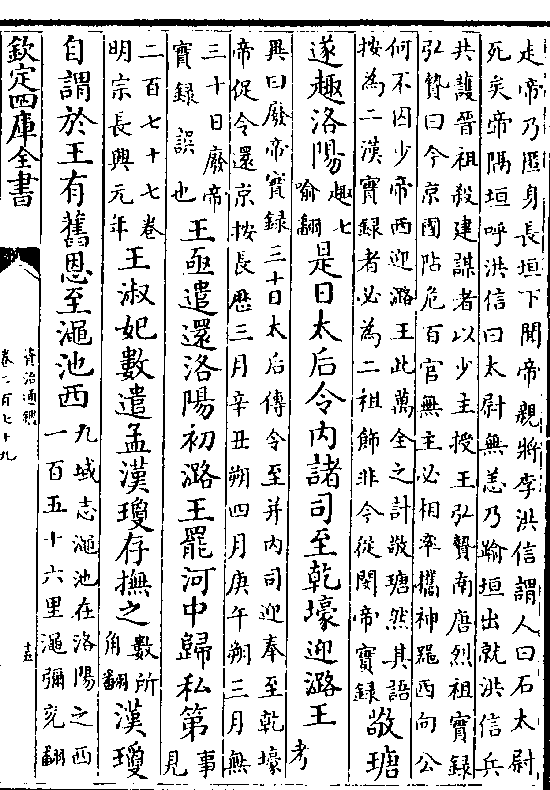 走帝乃匿身長垣下聞帝親將李洪信謂人曰石太尉
死矣帝隔垣呼洪信曰太尉無恙乃踰垣出就洪信兵
共護晉祖殺建謀者以少主授王弘贄南唐烈祖實錄
弘贄曰今京國阽危百官無主必相率攜神器西向公
何不囚少帝西迎潞王此萬全之計敬瑭然其語
按為二漢實錄者必為二祖飾非今從閔帝實錄
敬瑭
遂趣洛陽
趣七
喻翻
是日太后令内諸司至乾壕迎潞王
考
異曰廢帝實錄三十日太后傳令至并内司迎奉至乾壕
帝促令還京按長歷三月辛丑朔四月庚午朔三月無
三十日廢帝
實錄誤也
王亟遣還洛陽初潞王罷河中歸私第
事
見
二百七十七卷
明宗長興元年
王淑妃數遣孟漢瓊存撫之
數所
角翻
漢瓊
自謂於王有舊恩至澠池西
九域志澠池在洛陽之西
一百五十六里澠彌兖翻
欽定四庫全書
資治通鑑
卷二百七十九